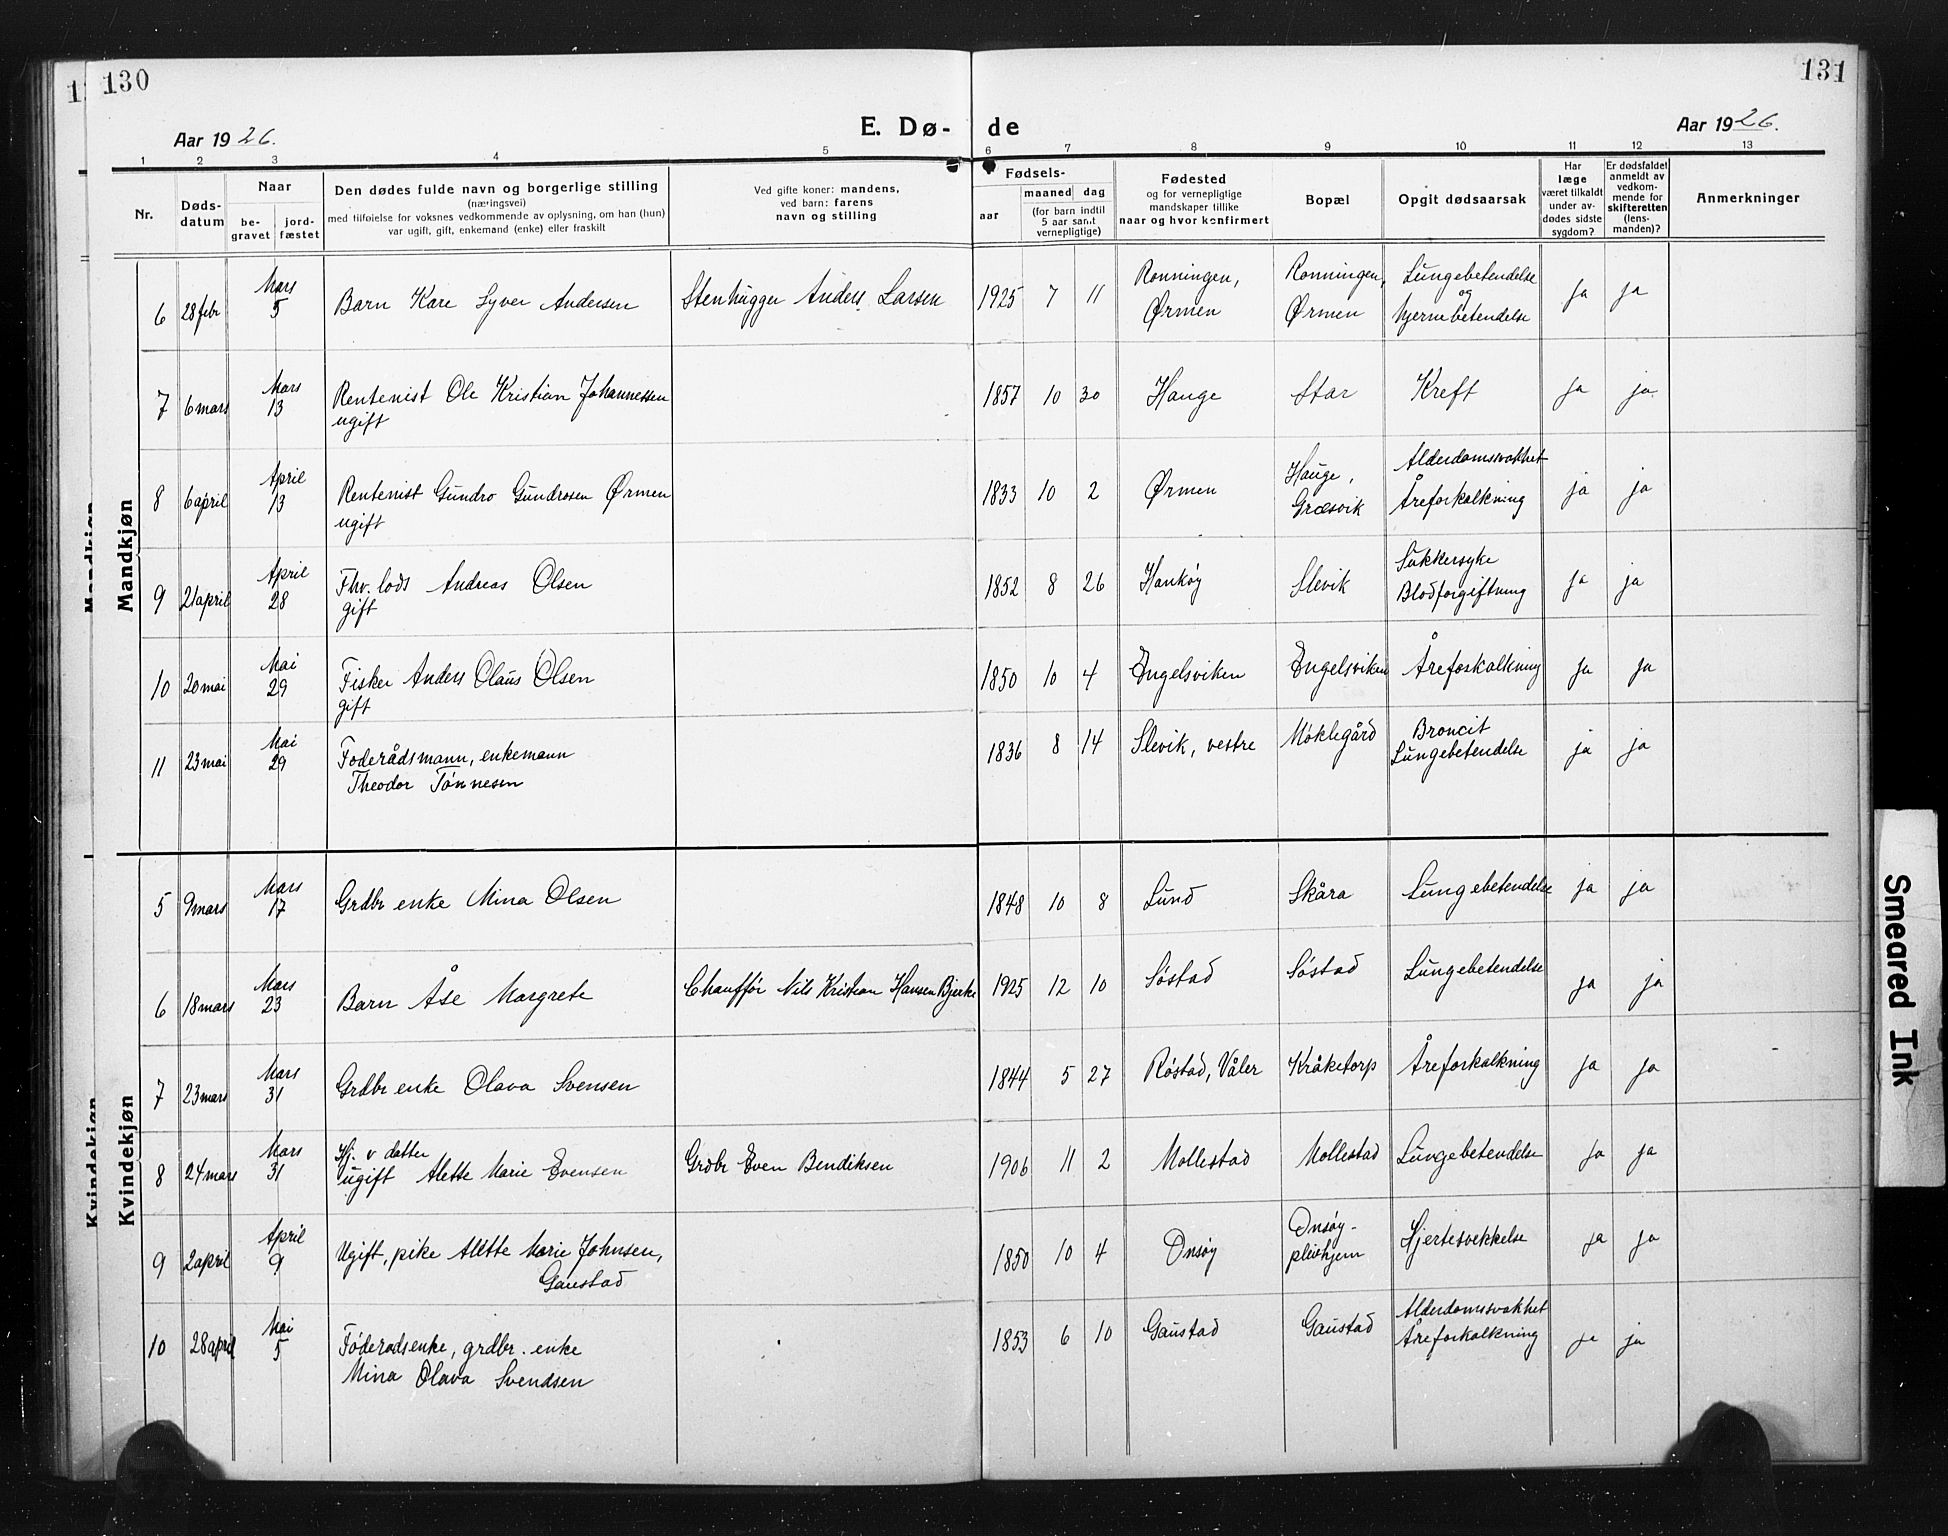 130
131
Aar 1926.
E. Dø- de
Aar 1926.
1 2 3 4 5 6 7 8 9 10 11 12 13
Nr.
Døds-
datum
Naar
be-
gravet
jord-
fæstet
Den dødes fulde navn og borgerlige stilling
(næringsvei)
med tilføielse for voksnes vedkommende av oplysning, om han (hun)
var ugift, gift, enkemand (enke) eller fraskilt
Ved gifte koner: mandens,
ved barn: farens
navn og stilling
Fødsels-
aar
maaned dag
(for barn indtil
5 aar samt
vernepligtige)
Fødested
og for vernepligtige
mandskaper tillike
naar og hvor konfirmert
Bopæl
Opgit dødsaarsak
Har
læge
været tilkaldt
under av-
dødes sidste
sygdom?
Er dødsfaldet
anmeldt av
vedkom-
mende for
skifteretten
(lens-
manden)?
Anmerkninger
Mandkjøn
6 28 febr Mars 5 Barn Kare Syver Andersen Stenhugger Anders Larsen 1925 7 11 Rønningen, Ørmen Rønningen, Ørmen Lungebetendelse og hjernebetendelse ja ja
7 6 mars Mars 13 Rentenist Ole Kristian Johannessen
ugift 1857 10 30 Hauge Star Kreft ja ja
8 6 april April 13 Rentenist Gundro Gundrosen Ørmen
ugift 1833 10 2 Ørmen Hauge, Græsvik Alderdomsvakhet Åreforkalkning ja ja
9 21 april April 28 Fhv. lods Andreas Olsen
gift 1852 8 26 Hankøy Slevik Sukkersyke Blodforgiftning ja ja
10 20 mai Mai 29 Fisker Anders Olaus Olsen
gift 1850 10 4 Engelsviken Engelsviken Åreforkalkning ja ja
11 23 mai Mai 29 Foderådsmann, enkemann
Theodor Tønnesen 1836 8 14 Slevik, vestre Møklegård Broncit Lungebetendelse ja ja
Kvindekjøn
5 9 mars Mars 17 Grdbr enke Mina Olsen 1848 10 8 Lund Skåra Lungebetendelse ja ja
6 18 mars Mars 23 Barn Åse Margrete Chauffør Nils Kristian Hansen Bjerke 1925 12 10 Søstad Søstad Lungebetendelse ja ja
7 23 mars Mars 31 Grdbr enke Olava Svensen 1844 5 27 Røstad, Våler Kråketorp Åreforkalkning ja ja
8 24 mars Mars 31 Hj. v datter
ugift Alette Marie Evensen Grdbr Even Bendiksen 1906 11 2 Mollestad Mollestad Lungebetendelse ja ja
9 2 april April 9 Ugift, pike Alette Marie Johnsen,
Gaustad 1850 10 4 Onsøy Onsøy- pleiehjem Hjertesvekkelse ja ja
10 28 april Mai 5 Føderadsenke, grdbr. enke
Mina Olava Svendsen 1853 6 10 Gaustad Gaustad Alderdomsvakhet Åreforkalkning ja ja
Smeared Ink